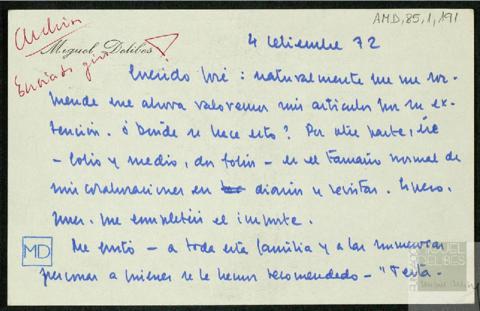 AMD,85,1,191
Archivo
Miguel Delibes
4 setiembre 72
Enviado giro
Querido José: naturalmente que me sor-
prende que ahora valoremos mis artículos por su ex-
tensión. ¿Dónde se hace esto? Por otra parte, ése
- folio y medio, dos folios - es el tamaño normal de
mis colaboraciones en diarios y revistas. Espero,
pues, me completéis el importe.
Me gustó - a toda esta familia y a las numerosas
personas a quienes se le hemos recomendado - "Testa-
MD
MIGUEL
DELIBES